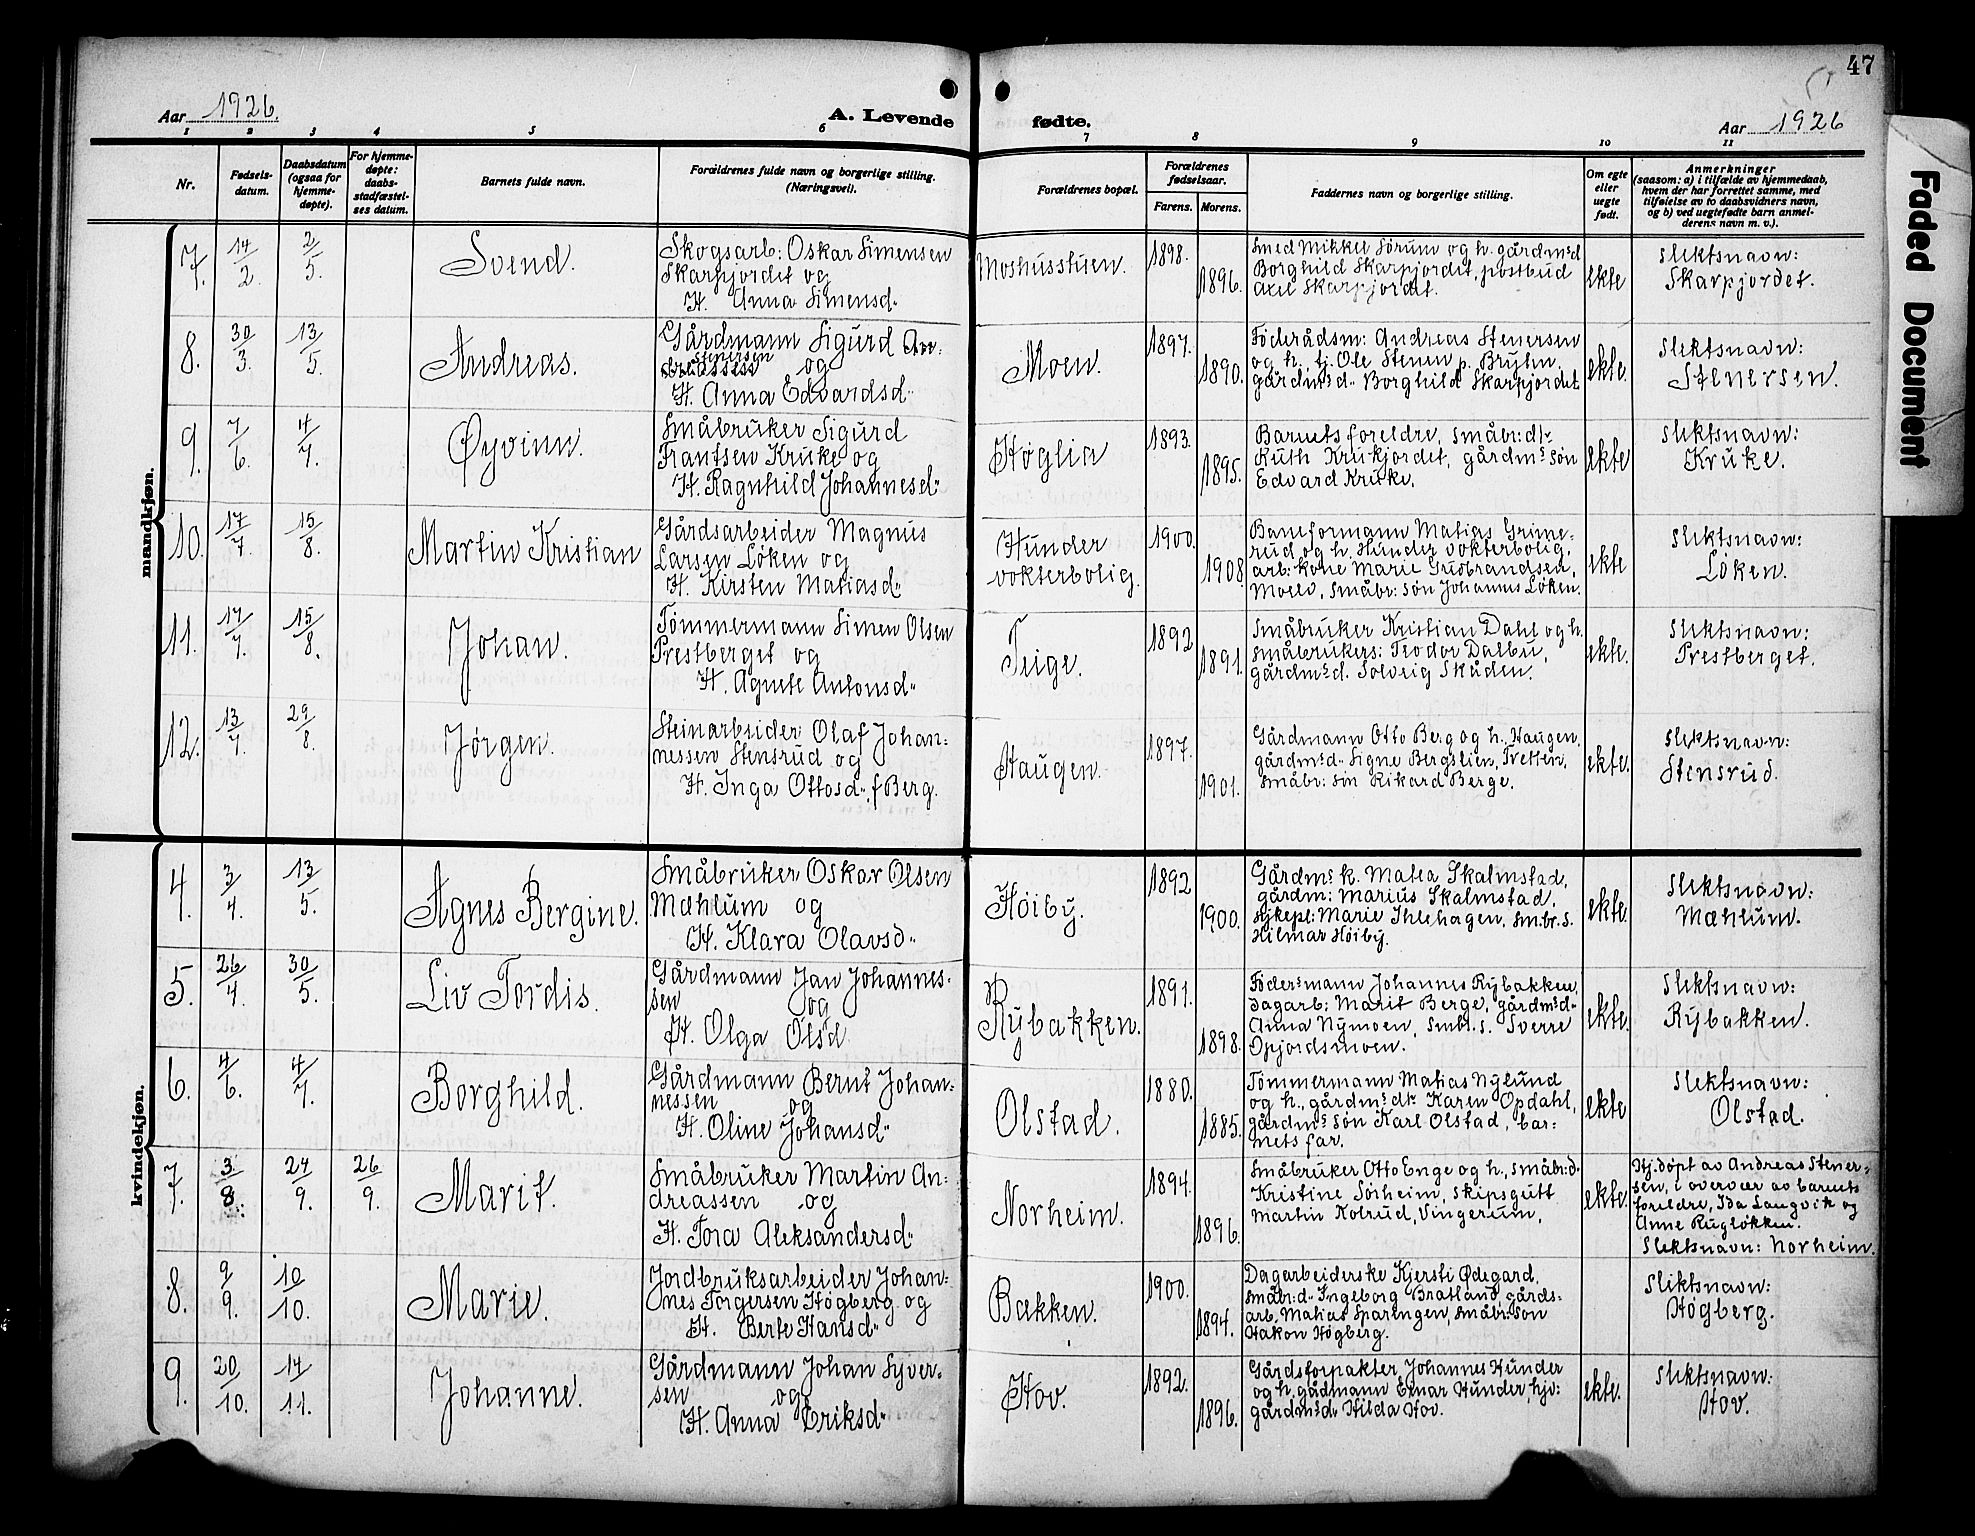 47
Faded Document
Aar 1926.
A. Levende fødte.
Aar 1926
1 2 3 4 5 6 7 8 9 10 11
Nr.
Fødsels-
datum.
Daabsdatum
(ogsaa for
hjemme-
døpte).
For hjemme-
døpte:
daabs-
stadfæstel-
ses datum.
Barnets fulde navn.
Forældrenes fulde navn og borgerlige stilling.
(Næringsvei).
Forældrenes bopæl.
Forældrenes
fødselsaar.
Farens. Morens.
Faddernes navn og borgerlige stilling.
Om egte
eller
uegte
født.
Anmerkninger
(saasom: a) i tilfælde av hjemmedaab,
hvem der har forrettet samme, med
tilføielse av to daabsvidners navn,
og b) ved uegtefødte barn anmel-
derens navn m. v.).
mandkjøn.
7. 14/2. 2/5.
Svend.
Skogsarb: Oskar Simensen
Skarpjordet og
H. Anna Simensd.
Moshusstuen.
1898.
1896.
Smed Mikkel Sørum og h. gårdmsd
Borghild Skarpjordet, postbud
Axel Skarpjordet.
ekte
slektsnavn:
Skarpjordet.
8. 30/3. 13/5.
Andreas.
Gårdmann Sigurd An-
stenersen
og
H. Anna Edvardsd.
Moen.
1897.
1890.
Føderådsm: Andreas Stenersen
og h., tj. Ole Stenen p. Brylin,
gårdmsd. Borghild Skarpjordet
ekte.
slektsnavn:
Stenersen.
9. 7/6. 4/7.
Øyvinn.
Småbruker Sigurd
Frantsen Kruke og
H. Ragnhild Johannesd.
Høglia
1893.
1895.
Barnets foreldre, småbr:dtr
Ruth Krukjordet, gårdms søn
Edvard Kruke.
ekte
slektsnavn:
Kruke.
10. 17/7. 15/8.
Martin Kristian
Gårdsarbeider Magnus
Larsen Løken og
H. Kirsten Matiasd.
Hunder
vokterbolig.
1900.
1908
Baneformann Matias Grime-
rud og h. Hunder vokterbolig,
arb: kone Marie Gudbrandsen,
Moelv, småbr: søn Johannes Løken.
ekte
slektsnavn:
Løken.
11. 17/7. 15/8.
Johan.
Tømmermann Simen Olsen
Prestberget og
H. Agnete Antonsd.
Teige.
1892
1891.
Småbruker Kristian Dahl og h.
småbrukers: Teodor Dalbu,
gårdmsd. Solveig Skåden.
ekte.
slektsnavn:
Prestberget.
12. 13/7. 29/8.
Jørgen.
Steinarbeider Olaf Johan-
nessen Stensrud og
H. Inga Ottosd. f Berg.
Haugen.
1897.
1901.
Gårdmann Otto Berg og h. Haugen,
gårdmsd. Signe Bergslien, Tretten,
småbr: søn Rikard Berge.
ekte.
slektsnavn:
Stensrud.
kvindekjøn.
4. 3/4. 13/5.
Agnes Bergine.
Småbruker Oskar Olsen
Mæhlum og
H. Klara Olavsd.
Høiby.
1892
1900.
Gårdms k. Matea Skalmstad,
gårdm: Marius Skalmstad,
sykepl: Marie Ihlehagen, sm.br.s.
Hilmar Høiby.
ekte.
slektsnavn:
Mæhlum.
5. 26/4. 30/5.
Liv Tordis.
Gårdmann Jan Johannes-
sen og
H. Olga Olsd.
Rybakken.
1891.
1898.
Føders mann Johannes Rybakken,
Dagarb: Marit Berge, gårdmsd.
Anna Nymoen, småbr.s. Sverre
Opjordsmoen.
ekte.
slektsnavn:
Rybakken.
6. 4/6. 4/7.
Borghild.
Gårdmann Bernt Johan-
nessen og
H. Oline Johansd.
Olstad.
1880.
1885.
Tømmermann Matias Nylund
og h., gårdms dtr Karen Opdahl,
gårdms søn Karl Olstad, bar-
nets far.
ekte
slektsnavn:
Olstad.
7. 3/8. 24/9. 26/9.
Marit.
Småbruker Martin An-
dreassen og
H. Tora Aleksandersd.
Norheim.
1894.
1896.
Småbruker Otto Enge og h., småbr:d.
Kristine Sørheim, skipsgutt
Martin Kolrud, Vingerum.
ekte
Hj.døpt av Andreas Stener-
sen, i overvær av barnets
foreldre, Ida Langvik og
Anne Rugløkken.
Slektsnavn: Norheim.
8. 9/9. 10/10.
Marie.
Jordbruksarbeider Johan-
nes Torgersen Høgberg og
H. Berte Hansd.
Bækken.
1900.
1894.
Dagarbeiderske Kjersti Ødegard,
småbr:d. Ingeborg Bratland, gårds-
arb. Matias Sparengen, småbr: søn
Håkon Høgberg.
Slektsnavn:
Høgberg.
9. 20/10. 14/11.
Johanne.
Gårdmann Johan Syver-
sen og
H. Anna Eriksd.
Hov.
1892.
1896.
Gårdsforpakter Johannes Hunder
og h, gårdmann Einar Hunder, hjv:
gårdmsd. Hilda Hov.
ekte.
slektsnavn:
Hov.